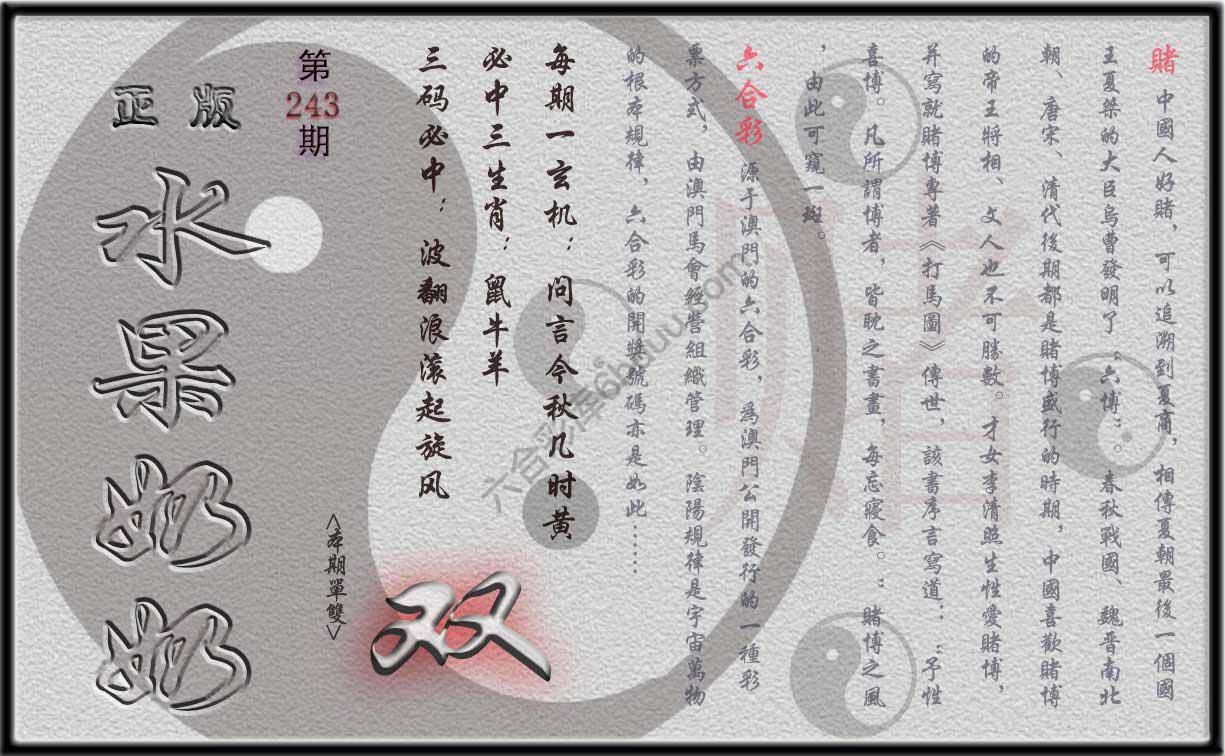 賭 中國人好賭，可以追溯到夏商，相傳夏朝最後一個國
王夏桀的大臣烏曹發明了“六博”。春秋戰國、魏晋南北
朝、唐宋、清代後期都是賭博盛行的時期，中國喜歡賭博
的帝王將相、文人也不可勝數。才女李清照生性愛賭博，
并寫就賭博專著《打馬圖》傳世，該書序言寫道：“予性
喜博。凡所謂博者，皆耽之晝晝，每忘寢食。”賭博之風
，由此可窺一斑。
六合彩 源于澳門的六合彩，為澳門公開發行的一種彩
票方式，由澳門馬會經營組織管理。陰陽規律是宇宙萬物
的根本規律，六合彩的開獎號碼亦是如此……
每期一玄机：问言今秋几时黄
必中三生肖：鼠牛羊
三码必中：波翻浪滚起旋风
第
243
期
<本期單雙>
双
正版
水果奶奶
賭
六合彩库6hduu.com